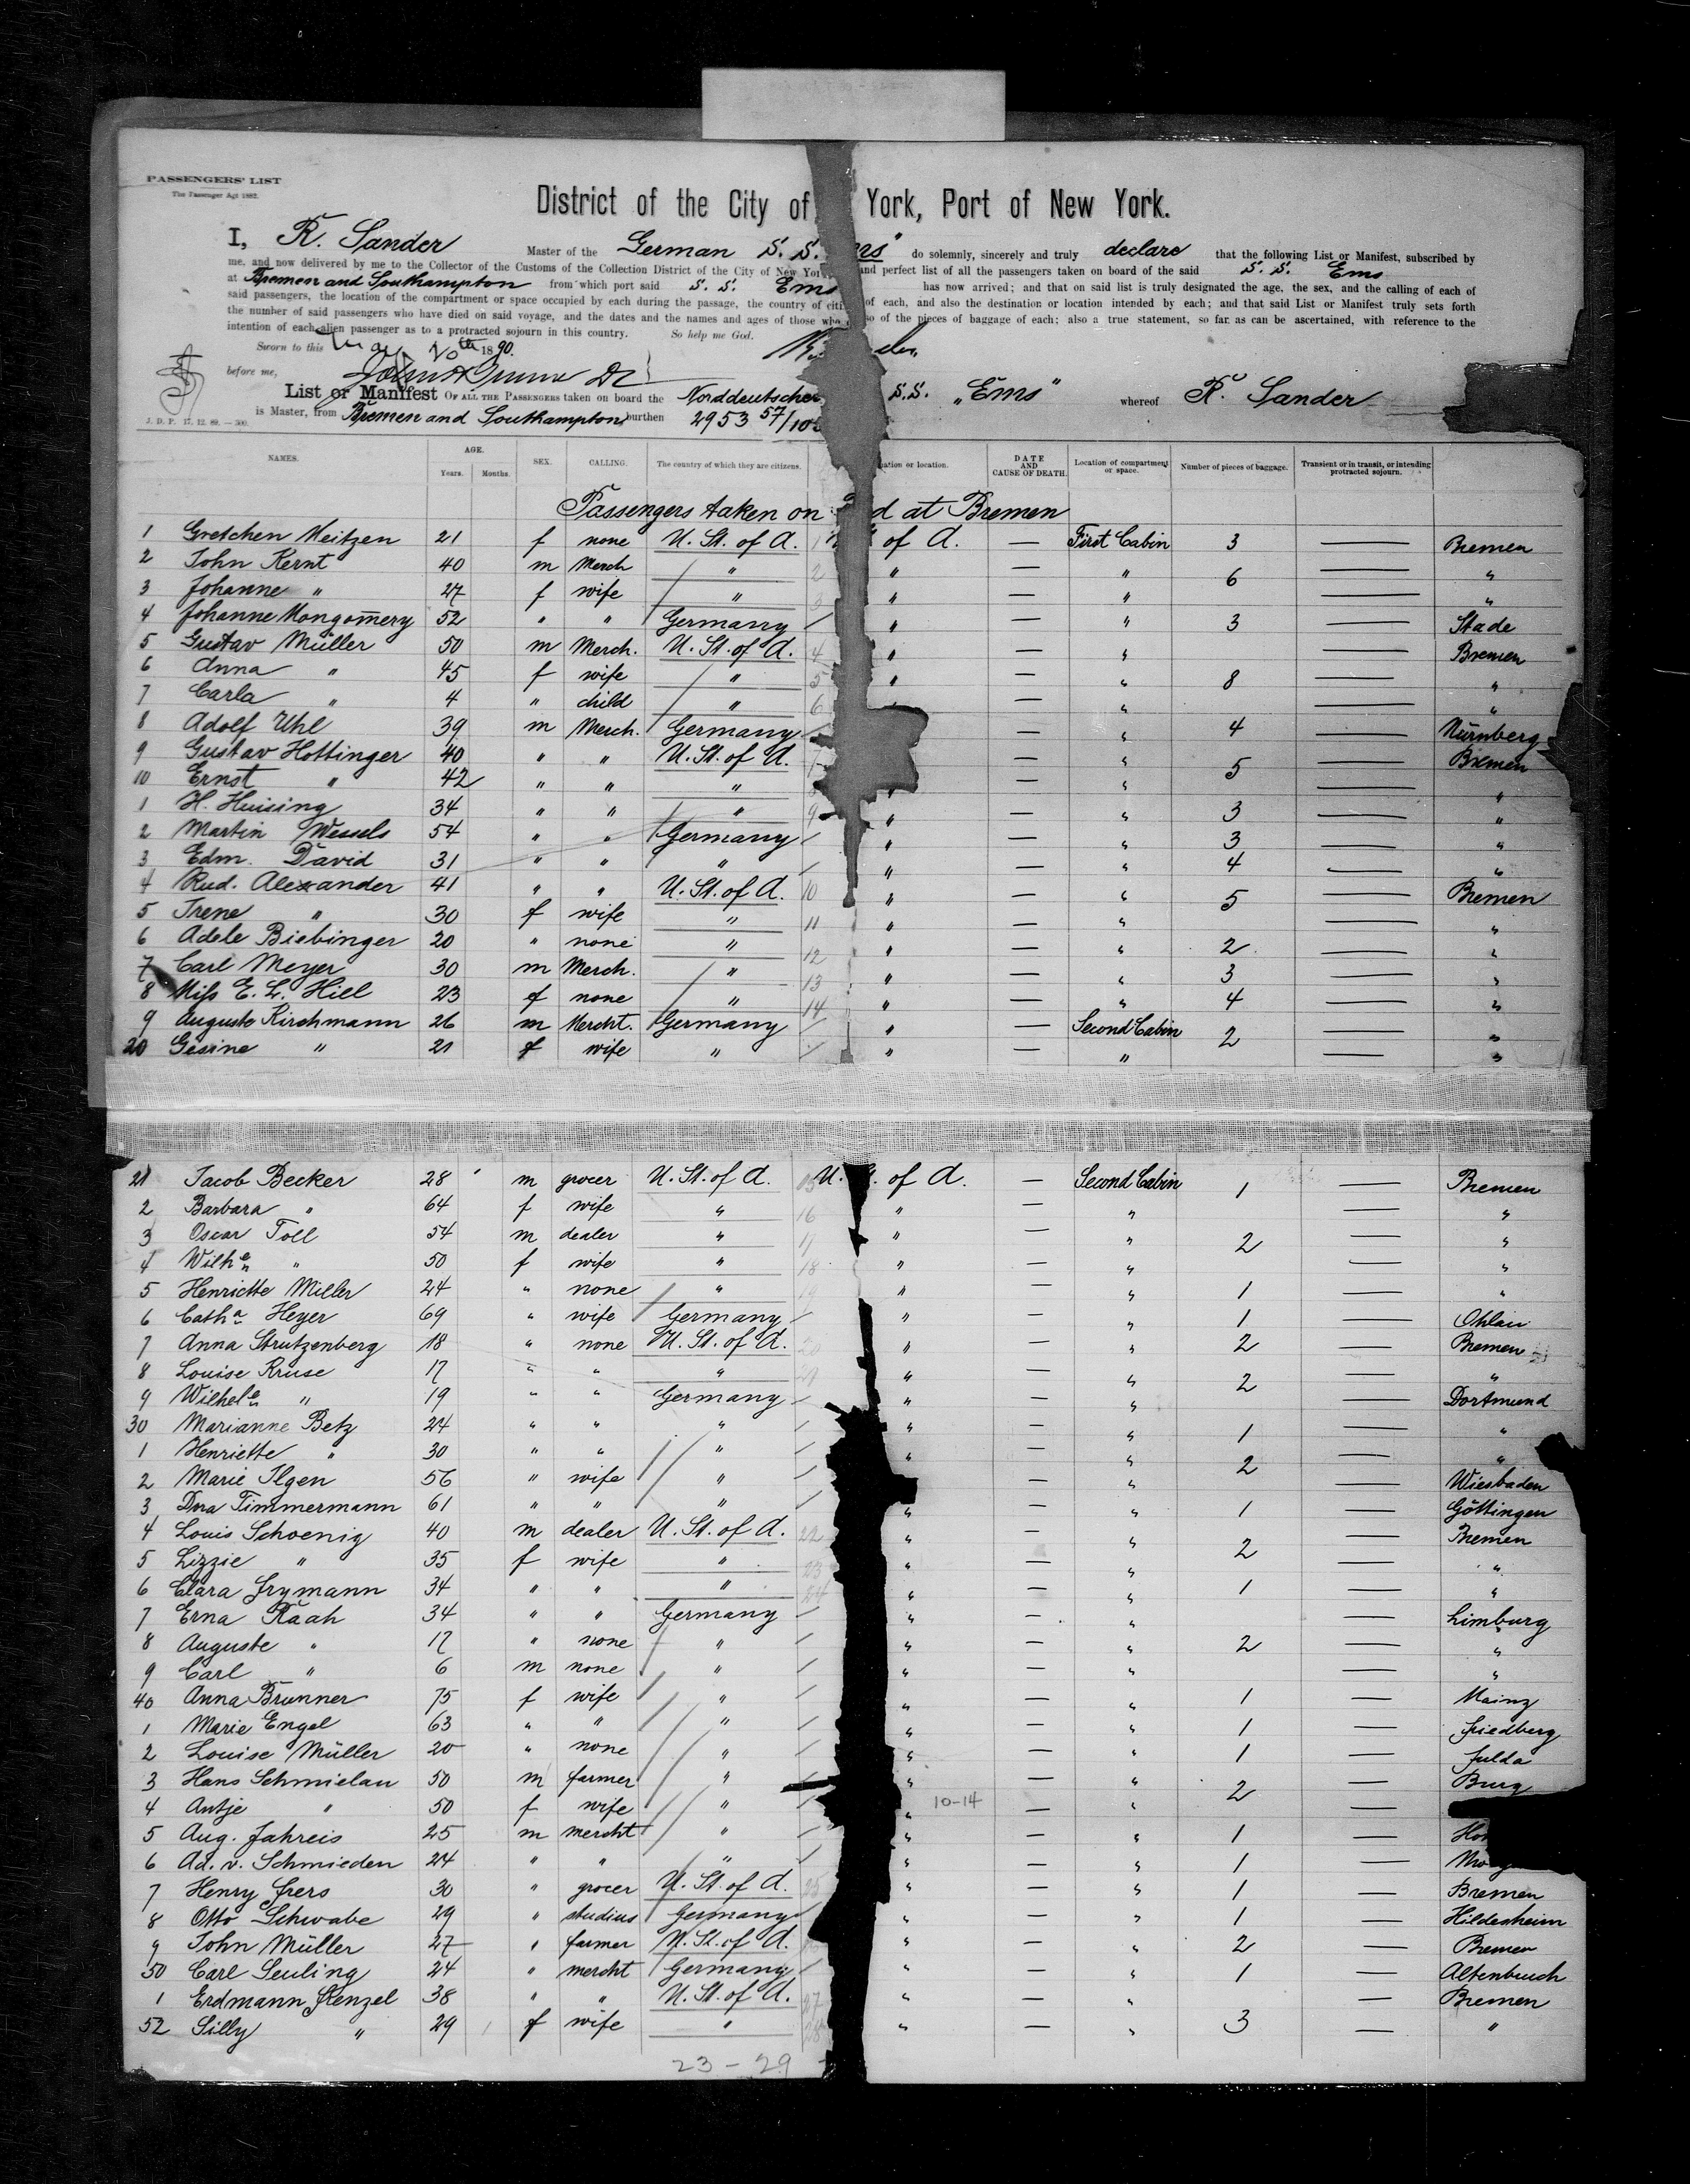 PASSENGERS' LIST
The Passenger Act 1882.
District of the City of York, Port of New York.
I, R. Sander Master of the German S. S. do solemnly, sincerely and truly declare that the following List or Manifest, subscribed by
me, and now delivered by me to the Collector of the Customs of the Collection District of the City of New and perfect list of all the passengers taken on board of the said S. S. Ems
at Bremen and Southampton from which port said S. S. Ems has now arrived; and that on said list is truly designated the age, the sex, and the calling of each of
said passengers, the location of the compartment or space occupied by each during the passage, the country of of each, and also the destination or location intended by each; and that said List or Manifest truly sets forth
the number of said passengers who have died on said voyage, and the dates and the names and ages of those who of the pieces of baggage of each; also a true statement, so far as can be ascertained, with reference to the
intention of each alien passenger as to a protracted sojourn in this country. So help me God.
Sworn to this May 10th 1890.
before me,
List or Manifest OF ALL THE PASSENGERS taken on board the Norddeutscher S.S. „Ems" whereof R. Sander
is Master, from Bremen and Southampton burthen 2953 57/
J. D. P. 17. 12. 89. — 300.
NAMES. AGE. Years. Months. SEX. CALLING. The country of which they are citizens. or location. DATE AND CAUSE OF DEATH. Location of compartment or space. Number of pieces of baggage. Transient or in transit, or intending protracted sojourn.
Passengers taken on at Bremen
1 Gretchen Meitzen 21 f none U. St. of A. 1 of A. — First Cabin 3 — Bremen
2 John Kernt 40 m Merch " 2 " — " 6 — "
3 Johanne " 27 f wife " 3 " — " — "
4 Johanne Mongomery 52 " " Germany " — " 3 — Stade
5 Gustav Müller 50 m Merch. U. St. of A. 4 " — " — Bremen
6 Anna " 45 f wife " 5 " — " 8 — "
7 Carla " 4 " child " 6 — " — "
8 Adolf Uhl 39 m Merch. Germany — " 4 — Nürnberg
9 Gustav Hottinger 40 " " U. St. of A. — " — Bremen
10 Ernst " 42 " " " " — " 5 — "
1 H. Huising 34 " " " 9 " — " 3 — "
2 Martin Wessels 54 " " Germany " — " 3 — "
3 Edm. David 31 " " " " — " 4 — "
4 Rud. Alexander 41 " " U. St. of A. 10 " — " 5 — Bremen
5 Irene " 30 f wife " 11 " — " — "
6 Adele Biebinger 20 " none " 12 " — " 2 — "
7 Carl Meyer 30 m Merch. " 13 " — " 3 — "
8 Miss E. L. Hill 23 f none " 14 " — " 4 — "
9 Auguste Kirchmann 26 m Mercht. Germany " — Second Cabin 2 — "
20 Gesine " 21 f wife " " — " — "
21 Jacob Becker 28 m grocer U. St. of A. 15 U. of A. — Second Cabin 1 — Bremen
2 Barbara " 64 f wife " 16 " — " — "
3 Oscar Toll 54 m dealer " 17 " — " 2 — "
4 Wilhe " 50 f wife " 18 " — " — "
5 Henriette Miller 24 " none " 19 " — " 1 — "
6 Catha Heyer 69 " wife Germany " — " 1 — Ohlau
7 Anna Strutzenberg 18 " none U. St. of A. 20 " — " 2 — Bremen
8 Louise Kruse 17 " " " 21 " — " 2 — "
9 Wilhele " 19 " " Germany " — " — Dortmund
30 Marianne Betz 24 " " " " — " 1 — "
1 Henriette " 30 " " " " — " 2 — "
2 Marie Ilgen 56 " wife " — " — Wiesbaden
3 Dora Timmermann 61 " " " " — " 1 — Göttingen
4 Louis Schoenig 40 m dealer U. St. of A. 22 " — " 2 — Bremen
5 Lizzie " 35 f wife " 23 " — " — "
6 Clara Frymann 34 " " " 24 " — " 1 — "
7 Erna Raah 34 " " Germany " — " — Limburg
8 Auguste " 17 " none " " — " 2 — "
9 Carl " 6 m none " " — " — "
40 Anna Brunner 75 f wife " " — " 1 — Mainz
1 Marie Engel 63 " " " " — " 1 — Friedberg
2 Louise Müller 20 " none " " — " 1 — Fulda
3 Hans Schmielau 50 m farmer " " — " 2 — Burg
4 Antje " 50 f wife " " 10-14 — " —
5 Aug. Jahreis 25 m mercht " " — " 1 —
6 Ad. v. Schmieden 24 " " " " — " 1 —
7 Henry Frers 30 " grocer U. St. of A. 25 " — " 1 — Bremen
8 Otto Schwabe 29 " studius Germany " — " 1 — Hildesheim
9 John Müller 27 " farmer U. St. of A. " — " 2 — Bremen
50 Carl Seuling 24 " mercht Germany " — " 1 — Altenbruch
1 Erdmann Stenzel 38 " " U. St. of A. 27 " — " — Bremen
52 Silly " 29 f wife " 28 " — " 3 — "
23-29